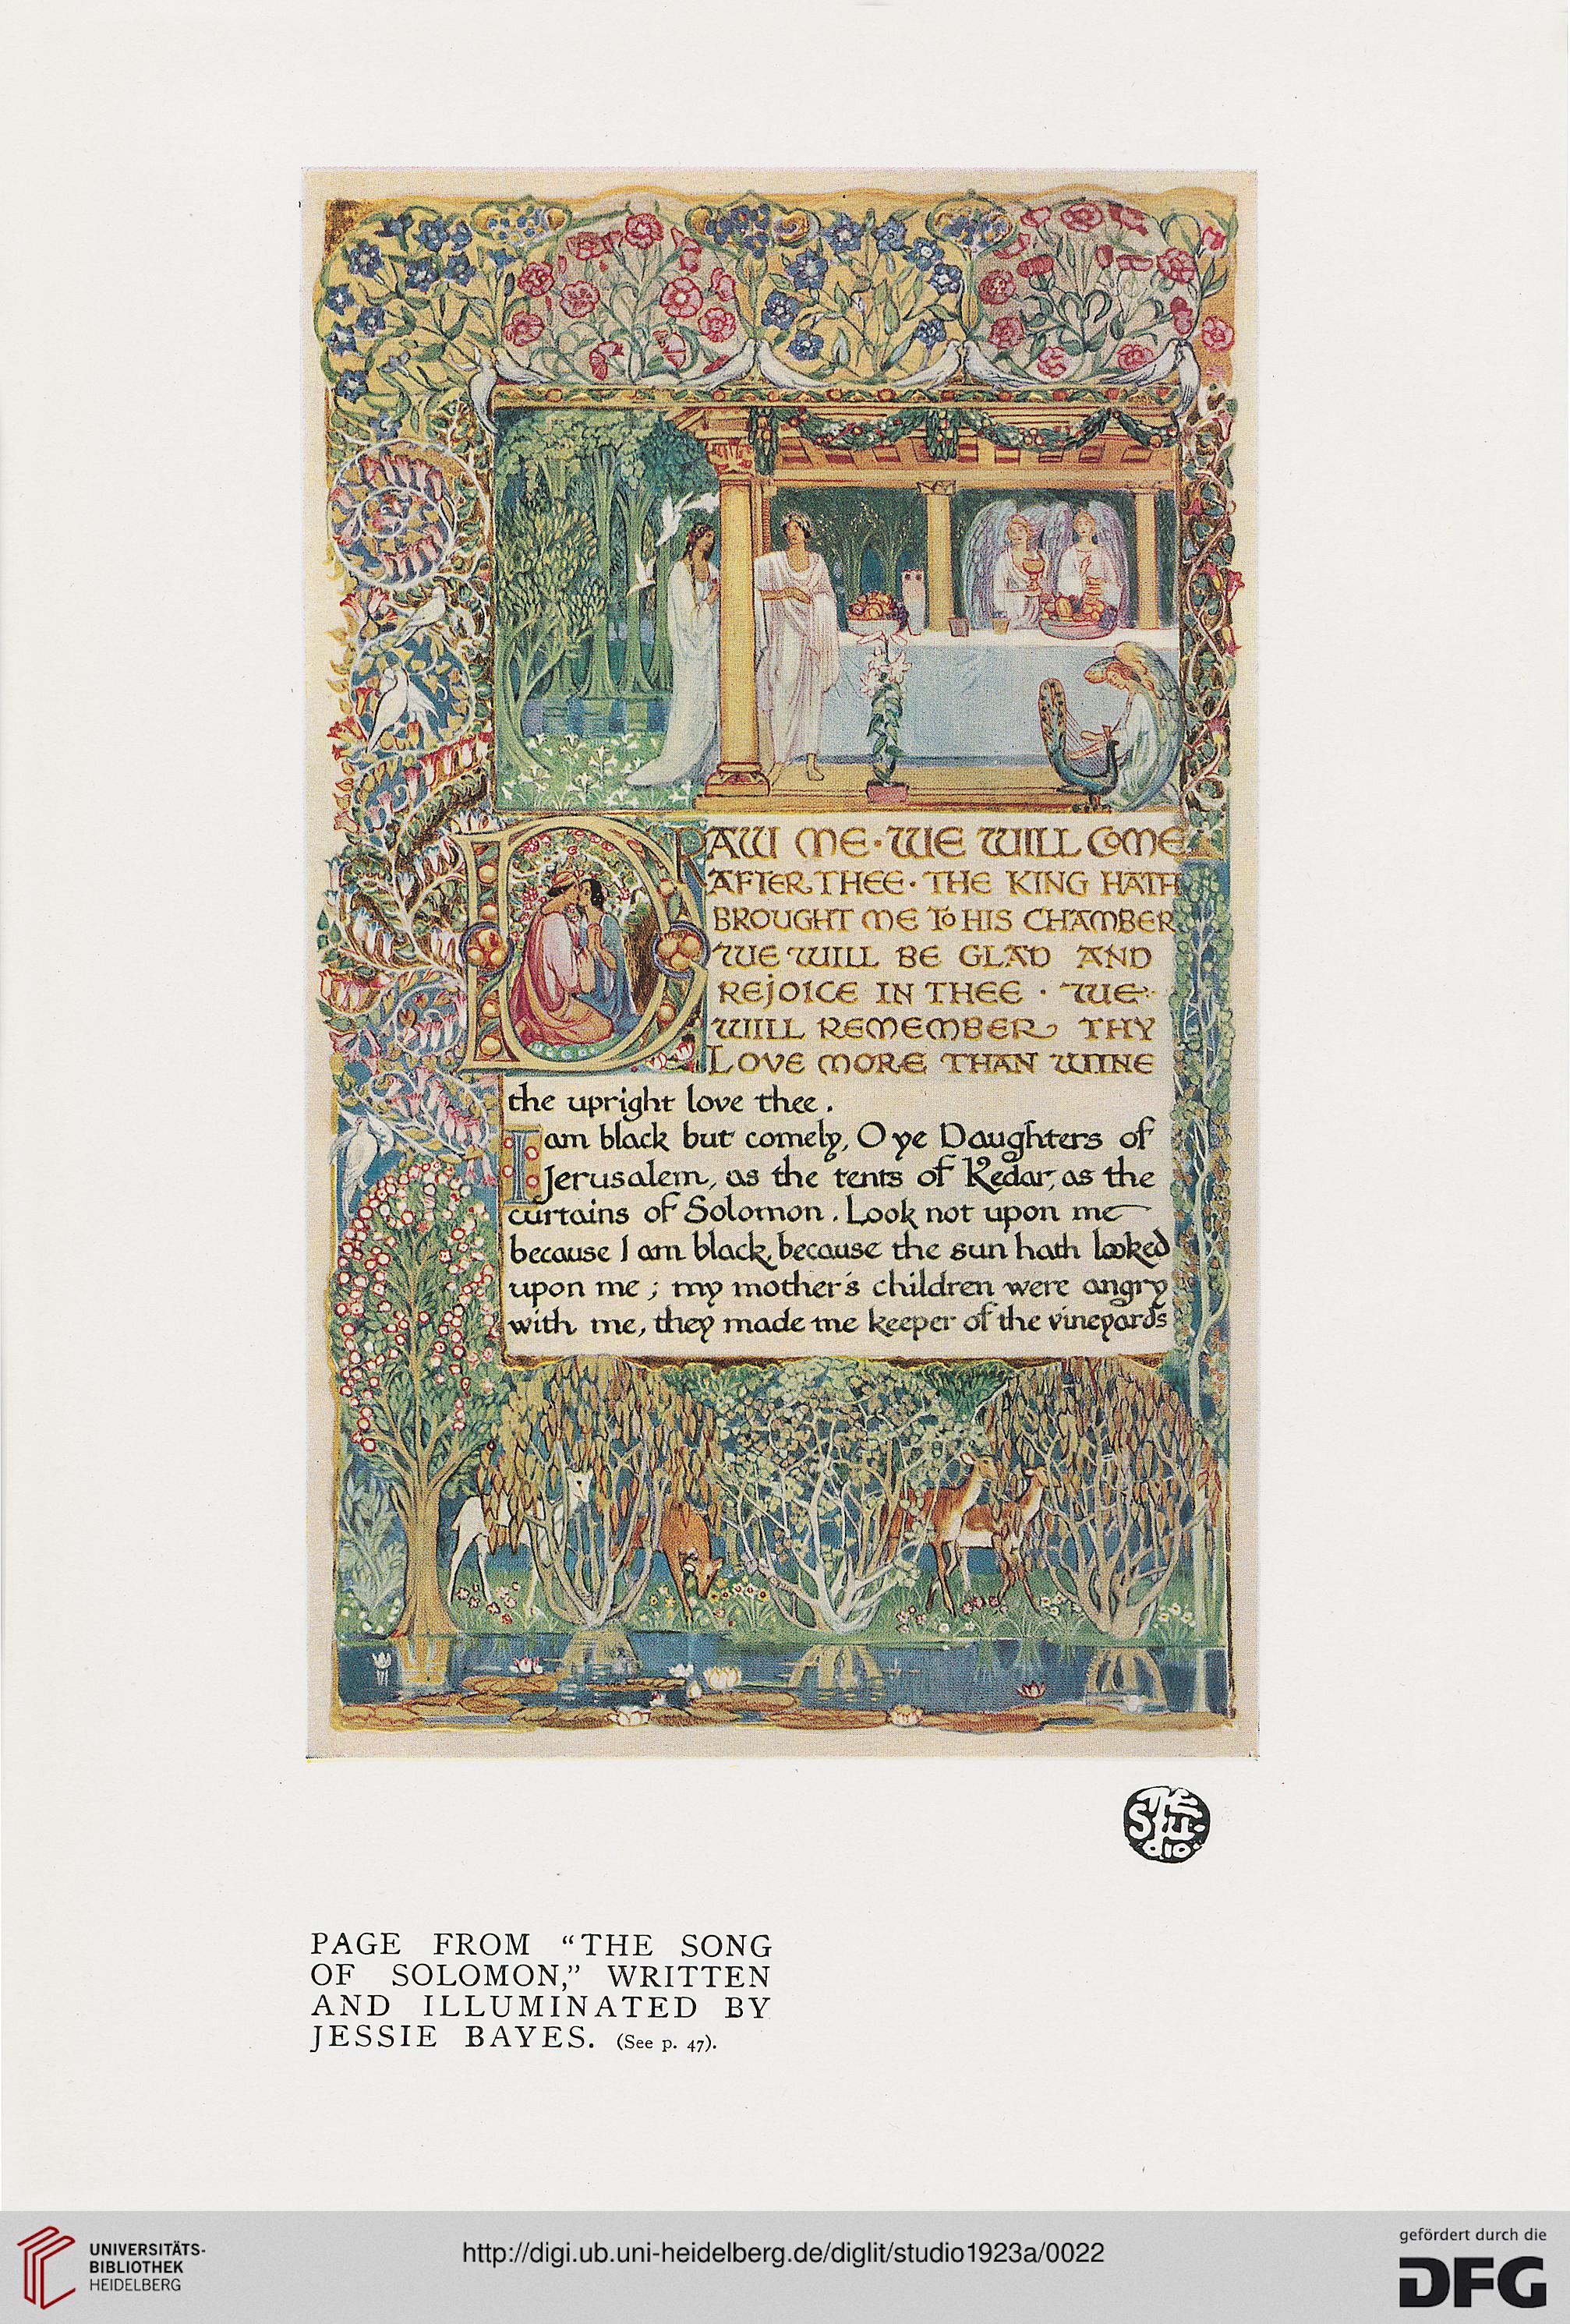 DRAW ME · WE WILL COME
AFTER THEE · THE KING HATH
BROUGHT ME To HIS CHAMBER
WE WILL BE GLAD AND
REJOICE IN THEE · WE
WILL REMEMBER THY
LOVE MORE THAN WINE
the upright love thee.
I am black but comely, O ye Daughters of
Jerusalem, as the tents of Kedar, as the
curtains of Solomon. Look not upon me
because I am black, because the sun hath looked
upon me; my mother's children were angry
with me, they made me keeper of the vineyards
THE
STU-
DIO:
PAGE FROM “THE SONG
OF SOLOMON,” WRITTEN
AND ILLUMINATED BY
JESSIE BAYES. (See p. 47).
UNIVERSITÄTS-
BIBLIOTHEK
HEIDELBERG
http://digi.ub.uni-heidelberg.de/diglit/studio1923a/0022
gefördert durch die
DFG